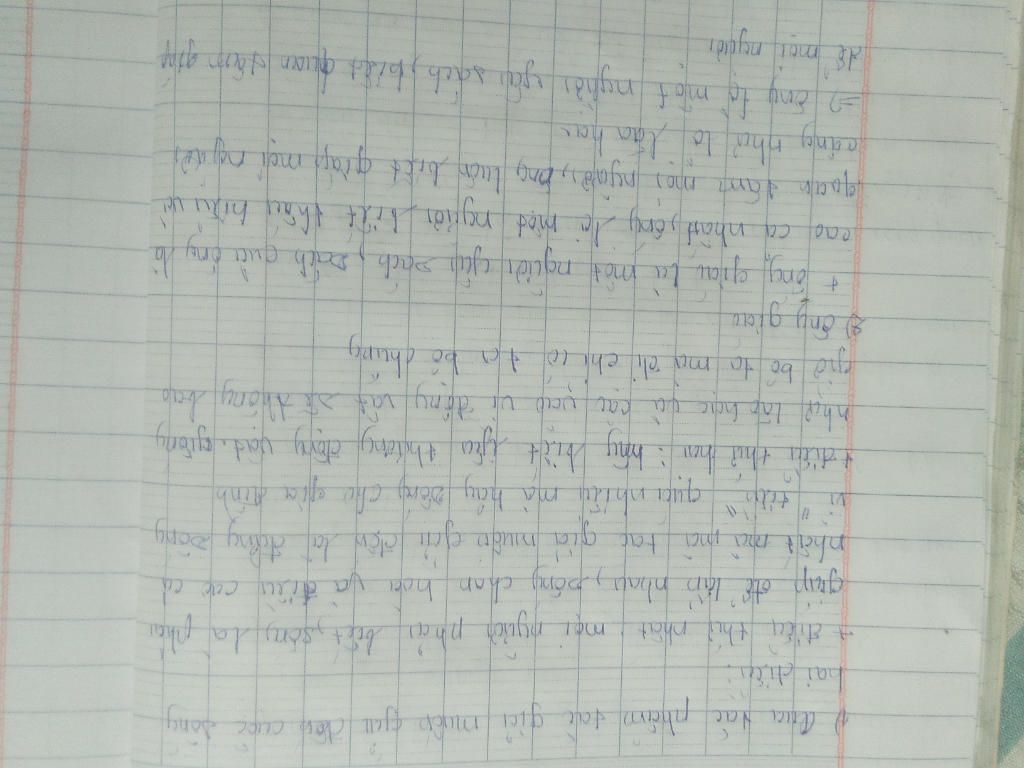 1) Qua tác phẩm tác giả muốn gửi đến cuộc sống
hai điều:
+ điều thứ nhất: mọi người phải biết sống là phải
giúp đỡ lẫn nhau, sống chan hòa và điều cao cả
nhất mà mà tác giả muốn gửi đến là đừng sống
vì "tiền" quá nhiều mà hãy sống cho gia đình
+ điều thứ hai: hãy biết yêu thương động vật. giống
như lão hạc và cậu vàng vì động vật sẽ không bao
giờ bỏ ta mà đi chỉ có ta bỏ chúng
2) Ông giáo
+ ông giáo là một người yêu sách, sách của ông là
cao cả nhất, ông là một người biết thấu hiểu và
quan tâm mọi người, ông luôn biết giúp mọi người
cũng như là lão hạc
=> ông là một người yêu sách, biết quan tâm giúp
đỡ mọi người